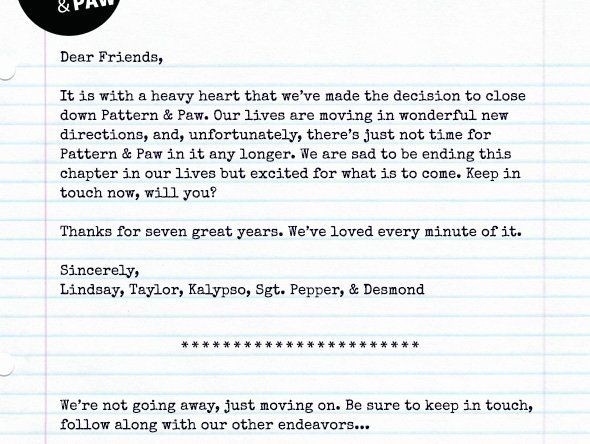 & PAW
Dear Friends,
It is with a heavy heart that we've made the decision to close
down Pattern & Paw. Our lives are moving in wonderful new
directions, and, unfortunately, there's just not time for
Pattern & Paw in it any longer. We are sad to be ending this
chapter in our lives but excited for what is to come. Keep in
touch now, will you?
Thanks for seven great years. We've loved every minute of it.
Sincerely,
Lindsay, Taylor, Kalypso, Sgt. Pepper, & Desmond
************************
We're not going away, just moving on. Be sure to keep in touch,
follow along with our other endeavors...